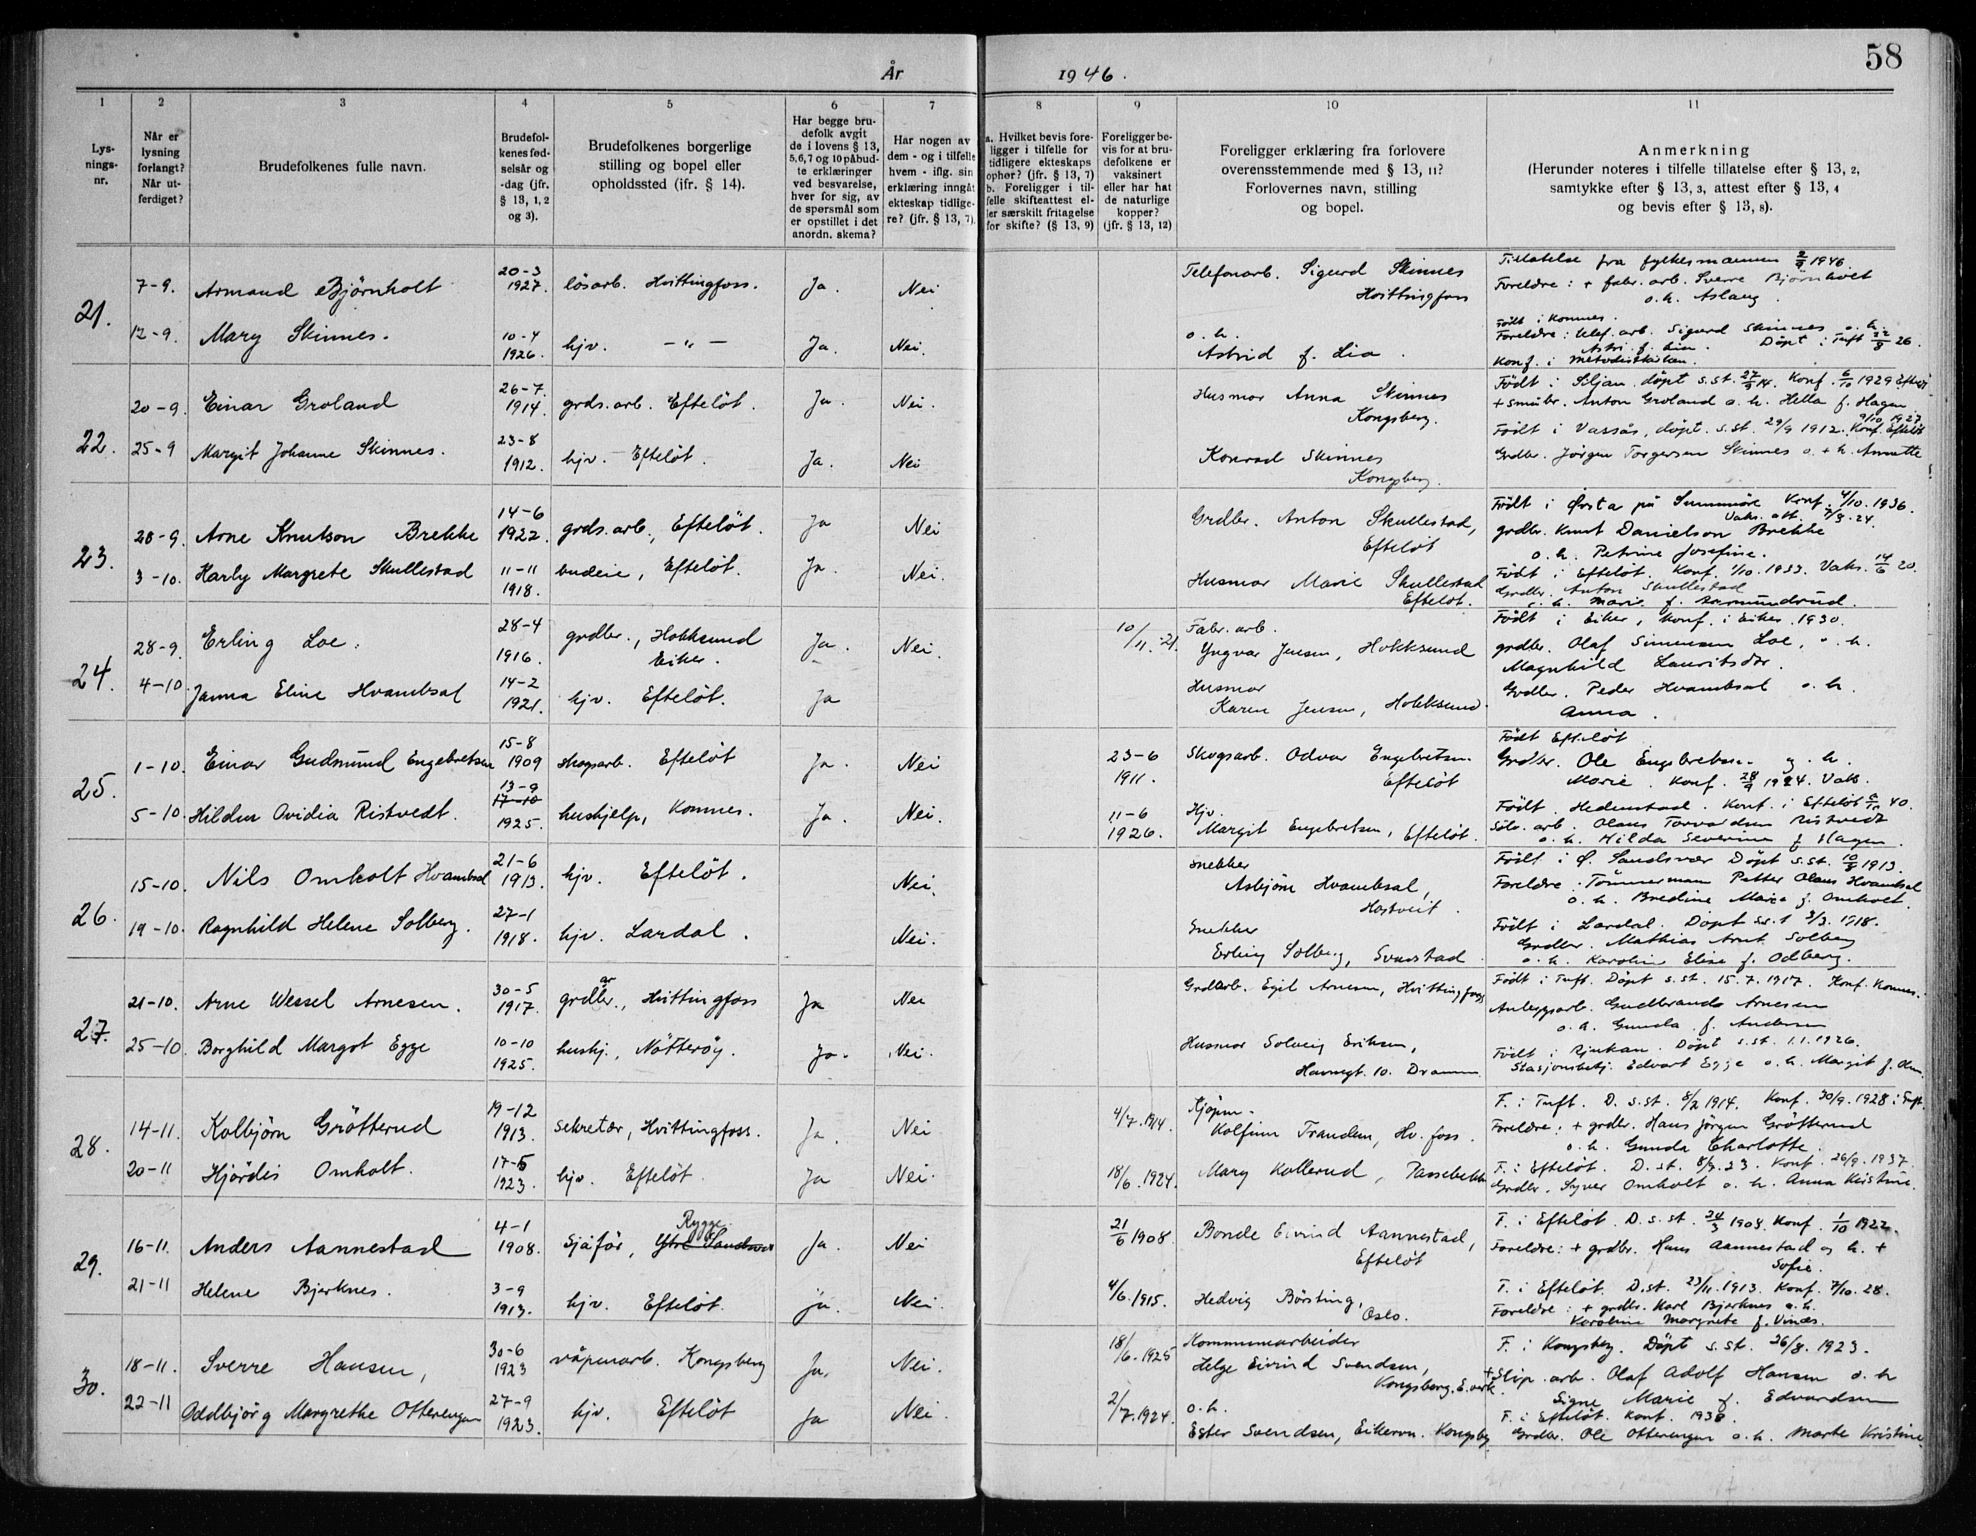 58
År 1946.
1 2 3 4 5 6 7 8 9 10 11
Lys-
nings-
nr.
Når er
lysning
forlangt?
Når ut-
ferdiget?
Brudefolkenes fulle navn.
Brudefol-
kenes fød-
selsår og
-dag (jfr.
§ 13, 1, 2
og 3).
Brudefolkenes borgerlige
stilling og bopel eller
opholdssted (ifr. § 14).
Har begge bru-
defolk avgit
de i lovens § 13,
5,6,7 og 10 påbud-
te erklæringer
ved besvarelse,
hver for sig, av
de spørsmål som
er opstillet i det
anordn. skema?
Har nogen av
dem - og i tilfelle
hvem - iflg. sin
erklæring inngått
ekteskap tidlige-
re? (jfr. § 13, 7).
a. Hvilket bevis fore-
ligger i tilfelle for
tidligere ekteskaps
ophør? (jfr. § 13, 7)
b. Foreligger i til-
felle skifteattest el-
ler særskilt fritagelse
for skifte? (§ 13, 9)
Foreligger be-
vis for at bru-
defolkene er
vaksinert
eller har hat
de naturlige
kopper?
(jfr. § 13, 12)
Foreligger erklæring fra forlovere
overensstemmende med § 13, 11?
Forlovernes navn, stilling
og bopel.
Anmerkning
(Herunder noteres i tilfelle tillatelse efter § 13, 2,
samtykke efter § 13, 3, attest efter § 13, 4
og bevis efter § 13, 8).
21.
7-9. Armand Bjørnholt 20-3 1927. løsarb. Hvittingfoss. Ja. Nei
Telefonarb. Sigurd Skinnes
Hvittingfoss
Tillatelse fra fylkesmannen 2/9 1946.
Foreldre: + fabr. arb. Sverre Bjørnholt
o.h. Aslaug.
12-9. Mary Skinnes. 10-4 1926. hjv. —"— Ja. Nei.
o. h.
Astrid f. Lia.
Født i Komnes.
Foreldre: telef. arb. Sigurd Skinnes o. h.
Astri f. Lia. Döpt i Tuft 22/8 26.
Konf. i metodistkirken.
22.
20-9. Einar Groland 26-7 1914. grds.arb. Efteløt. Ja. Nei.
Husmor Anna Skinnes
Kongsberg.
Født i Siljan. döpt s.st. 27/9 14. Konf. 6/10 1929 Efteløt
+ småbr. Anton Groland o. h. Hella f. Hagen
25-9 Margit Johanne Skinnes. 23-8 1912. hjv. Efteløt. Ja. Nei
Konrad Skinnes
Kongsberg.
9/10 1927.
Født i Vassås, döpt. s.st. 29/9 1912. Konf. Efteløt
Grdbr. Jørgen Torgersen Skinnes o. + h. Annette
23.
28-9. Arne Knutson Brekke 14-6 1922. grds.arb., Efteløt. Ja Nei
Grdbr. Anton Skullestad,
Efteløt
Født i Ørsta på Sunnmøre Konf. 4/10. 1936.
Vaks. att. 7/9. 24.
grdbr. Knut Danielson Brekke
o. h. Petrine Josefine.
3-10. Harby Margrete Skullestad 11-11 1918. budeie, Efteløt. Ja. Nei.
Husmor Marie Skullestad
Efteløt.
Født i Efteløt. Konf. 1/10. 1933. Vaks. 14/6 20.
Grdbr. Anton Skullestad
o. h. Marie f. Aamundrud.
24.
28-9. Erling Loe. 28-4 1916. grdbr., Hokksund
Eiker. Ja. Nei.
10/11. -21.
Fabr. arb.
Yngvar Jensen, Hokksund
Født i Eiker, Konf. i Eiker. 1930.
grdbr. Olaf Simensen Loe, o. h
Magnhild Lauritsdtr.
4-10. Janna Eline Hvambsal 14-2 1921. hjv. Efteløt. Ja
Husmor
Karen Jensen, Hokksund.
Grdbr. Peder Hvambsal o. h.
Anna.
25.
1-10. Einar Gudmund Engebretsen 15-8 1909 skogsarb. Efteløt Ja. Nei
23-6
1911.
Skogsarb. Odvar Engebretsen
Efteløt
Født Efteløt
Grdbr. Ole Engebretsen og h.
Marie. Konf. 28/9 1924. Vaks.
5-10. Hildur Ovidia Ristvedt. 13-9 17-10 1925. hushjelp, Komnes. Ja. Nei.
11-6
1926.
Hjv.
Margit Engebretsen, Efteløt.
Født. Hedenstad. Konf. i Efteløt 40.
Sølv. arb. Olaus Torvardsen Ristvedt
o. h. Hilda Severine f Hagen.
26.
15-10. Nils Omholt Hvambsal 21-6 1913. hjv. Efteløt. Nei.
snekker
Asbjørn Hvambsal,
Hostveit.
Født i Ø. Sandsvær Döpt s.st. 10/9 1913.
Foreldre: Tømmermann Petter Olaus Hvambsal
o. h. Bredine Marie f. Omholt.
19-10. Ragnhild Helene Solberg. 27-1 1918. hjv. Lardal. Nei.
Snekker
Erling Solberg, Svarstad.
Født i Lardal. Döpt s.st 3/3. 1918.
Grdbr. Mathias Arnt Solberg
o. h. Karoline Elise f. Odberg.
27.
21-10. Arne Wessel Arnesen. 30-5 1917. grdbr. ar, Hvittingfoss Ja Nei
Grdarb. Egil Arnesen, Hvittingfoss
Født i Tuft. Döpt s.st. 15.7.1917. Konf. Komnes.
Anleggsarb. Gudbrand Arnesen
o. h. Gunda f. Andersen
25-10. Borghild Margot Egge 10-10 1925. hushj., Nøtterøy. Ja. Nei.
Husmor Solveig Eriksen,
Havnegt. 10. Drammen
Født i Rjukan. Döpt s.st. 1.1.1926.
Stasjonsbetj. Edvart Egge o. h. Margit f.
28.
14-11. Kolbjørn Grøtterud 19-12 1913. sekretær, Hvittingfoss. Ja. Nei
4/7. 1914.
Kjøpm.
Kolfinn Trandem, Hv. foss.
F. i Tuft. D. s.st. 8/2 1914. Konf. 30/9. 1928 i Tuft.
Foreldre: + grdbr. Hans Jørgen Grøtterud
o. h. Gunda Charlotte.
20-11 Hjørdis Omholt. 17-5 1923. hjv. Efteløt. Ja Nei.
18/6. 1924.
Mary Kollerud, Passebekk
F. i Efteløt. D. st. 8/7. 23. Konf. 26/9. 1937.
Grdbr. Syver Omholt o. h. Anna Kristine.
29.
16-11. Anders Aannestad 4-1 1908. sjåfør, Rygge Ytre Sandsvær Ja. Nei
21/6 1908.
Bonde Eivind Aannestad,
Efteløt
F. i Efteløt. D. s. st. 24/3 1908. Konf. 1/10 1922.
Foreldre: + grdbr. Hans Aannestad og h. +
Sofie.
21-11 Helene Bjerknes. 3-9 1913. hjv. Efteløt. Ja. Nei.
4/6. 1915.
Hedvig Børsting,
Oslo.
F. i Efteløt. D. st. 23/11. 1913. Konf. 7/10. 28.
Foreldre: + grdbr. Karl Bjerknes o. h.
Karoline Margrete f. Vinæs.
30.
18-11. Sverre Hansen, 30-6 1923 våpenarb. Kongsberg Ja. Nei.
18/6. 1925
Kommunearbeider
Helge Eivind Svendsen,
Kongsberg. E.verk.
F. i Kongsberg. Döpt s. st. 26/8. 1923.
+ Slip. arb. Olaf Adolf Hansen o. h
Signe Marie f. Edvardsen
22-11 Oddbjørg Margrethe Otterengen 27-9 1923. hjv. Efteløt Ja Nei.
2/7. 1924.
o. h.
Ester Svendsen, Eikervn. Kongsbg
F. i Efteløt. Konf. 1938.
Grdbr. Ole Otterengen o. h. Marte Kristine.